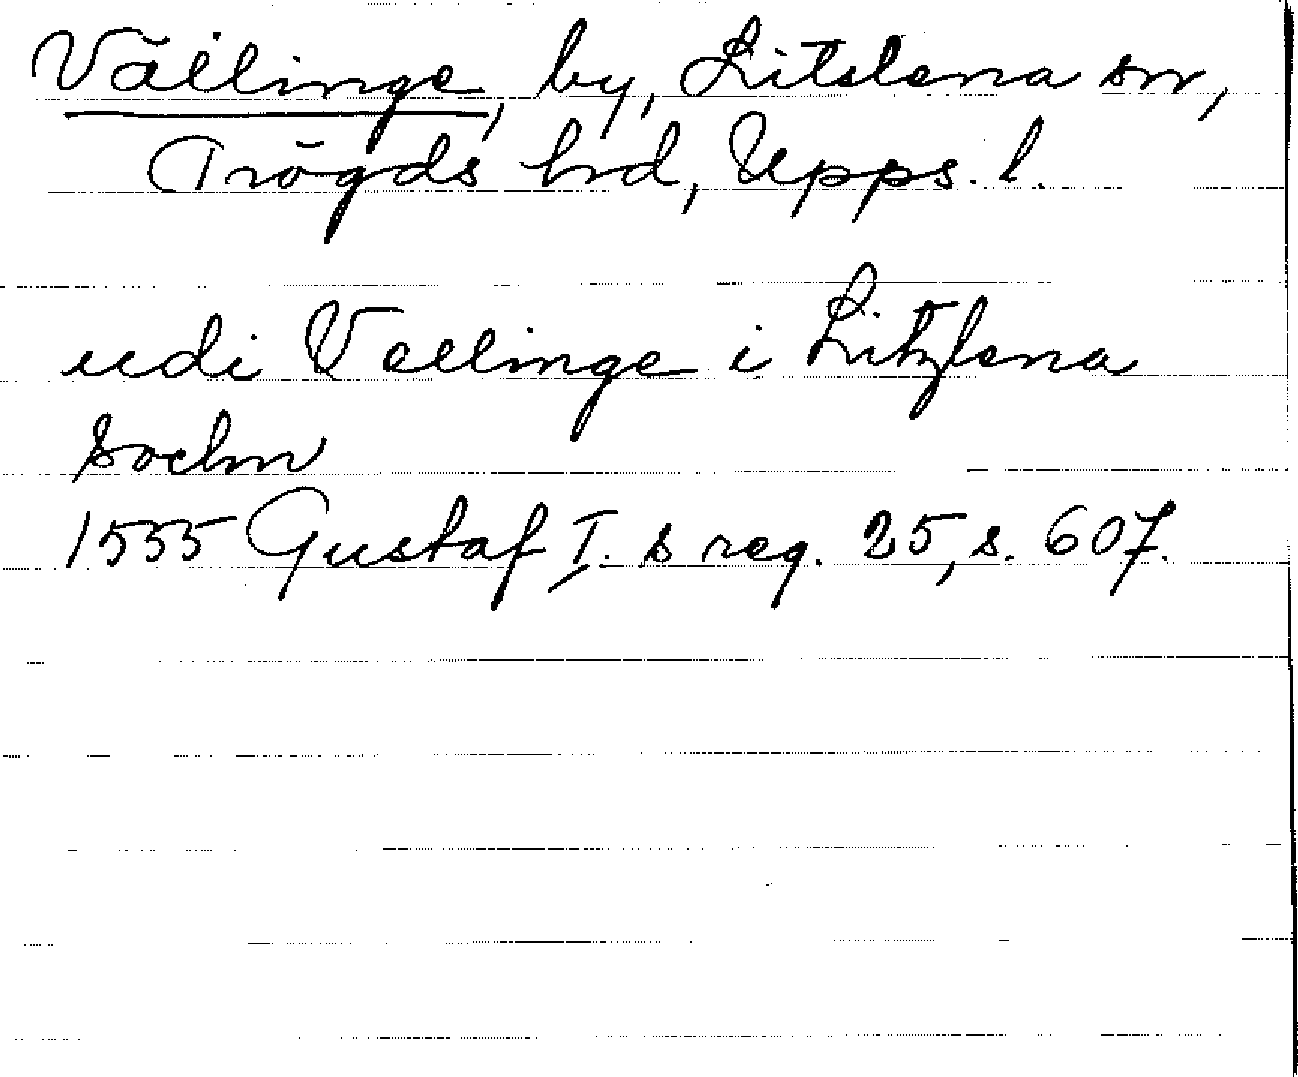 Vällinge, by, Litslena sn,
Trögds hrd, Upps. l.
udi Vellinge i Litzlena
sochn
1555 Gustaf I. s reg. 25, s. 607.